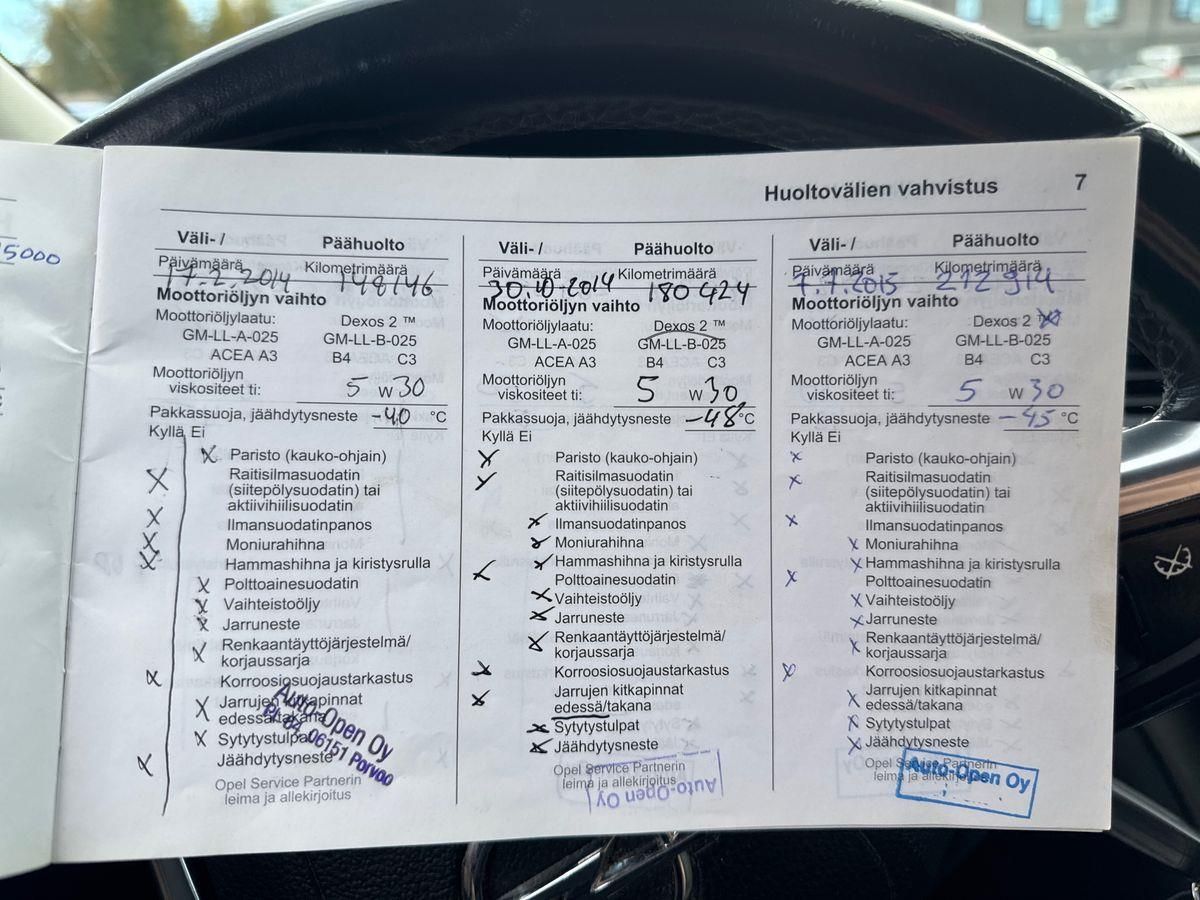 5000
Huoltovälien vahvistus 7
Väli- / Päähuolto
Päivämäärä Kilometrimäärä
17.2.2014 148146
Moottoriöljyn vaihto
Moottoriöljylaatu: Dexos 2 ™
GM-LL-A-025 GM-LL-B-025
ACEA A3 B4 C3
Moottoriöljyn
viskositeet ti: 5 W 30
Pakkassuoja, jäähdytysneste -40 °C
Kyllä Ei
X Paristo (kauko-ohjain)
X Raitisilmasuodatin
(siitepölysuodatin) tai
aktiivihiilisuodatin
X Ilmansuodatinpanos
X Moniurahihna
X Hammashihna ja kiristysrulla
X Polttoainesuodatin
X Vaihteistoöljy
X Jarruneste
X Renkaantäyttöjärjestelmä/
korjaussarja
X Korroosiosuojaustarkastus
X Jarrujen kitkapinnat
edessä/takana
X Sytytystulpat
X Jäähdytysneste
Opel Service Partnerin
leima ja allekirjoitus
Auto-Open Oy
PL 84, 06151 Porvoo
Väli- / Päähuolto
Päivämäärä Kilometrimäärä
30.10.2014 180424
Moottoriöljyn vaihto
Moottoriöljylaatu: Dexos 2 ™
GM-LL-A-025 GM-LL-B-025
ACEA A3 B4 C3
Moottoriöljyn
viskositeet ti: 5 W 30
Pakkassuoja, jäähdytysneste -48 °C
Kyllä Ei
X Paristo (kauko-ohjain)
X Raitisilmasuodatin
(siitepölysuodatin) tai
aktiivihiilisuodatin
X Ilmansuodatinpanos
X Moniurahihna
X Hammashihna ja kiristysrulla
X Polttoainesuodatin
X Vaihteistoöljy
X Jarruneste
X Renkaantäyttöjärjestelmä/
korjaussarja
X Korroosiosuojaustarkastus
X Jarrujen kitkapinnat
edessä/takana
X Sytytystulpat
X Jäähdytysneste
Opel Service Partnerin
leima ja allekirjoitus
Auto-Open Oy
Väli- / Päähuolto
Päivämäärä Kilometrimäärä
7.7.2015 212914
Moottoriöljyn vaihto
Moottoriöljylaatu: Dexos 2 ™ X
GM-LL-A-025 GM-LL-B-025
ACEA A3 B4 C3
Moottoriöljyn
viskositeet ti: 5 W 30
Pakkassuoja, jäähdytysneste -45 °C
Kyllä Ei
X Paristo (kauko-ohjain)
X Raitisilmasuodatin
(siitepölysuodatin) tai
aktiivihiilisuodatin
X Ilmansuodatinpanos
X Moniurahihna
X Hammashihna ja kiristysrulla
X Polttoainesuodatin
X Vaihteistoöljy
X Jarruneste
X Renkaantäyttöjärjestelmä/
korjaussarja
X Korroosiosuojaustarkastus
X Jarrujen kitkapinnat
edessä/takana
X Sytytystulpat
X Jäähdytysneste
Opel Service Partnerin
leima ja allekirjoitus
Auto-Open Oy